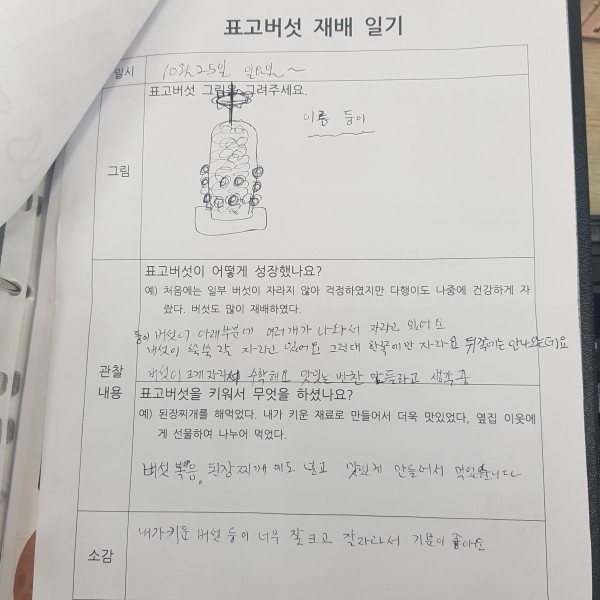 표고버섯 재배 일기
일시
10월 25일 일요일 ~
표고버섯 그림을 그려주세요.
이름 둥이
그림
표고버섯이 어떻게 성장했나요?
예) 처음에는 일부 버섯이 자라지 않아 걱정하였지만 다행이도 나중에 건강하게 자
랐다. 버섯도 많이 재배하였다.
둥이 버섯이 아래부분에 여러개가 나와서 자라고 있어요
버섯이 쑥쑥 잘 자라고 있어요 그런데 한쪽에만 자라요 뒤쪽에는 안나오는데요
버섯이 크게 자라서 수확해요 맛있는 반찬 만들라고 생각중
관찰
내용
표고버섯을 키워서 무엇을 하셨나요?
예) 된장찌개를 해먹었다. 내가 키운 재료로 만들어서 더욱 맛있었다, 옆집 이웃에
게 선물하여 나누어 먹었다.
버섯 볶음. 된장찌개에도 넣고 맛있게 만들어서 먹었습니다
소감
내가키운 버섯 둥이 너무 잘 크고 잘자라서 기분이 좋아요